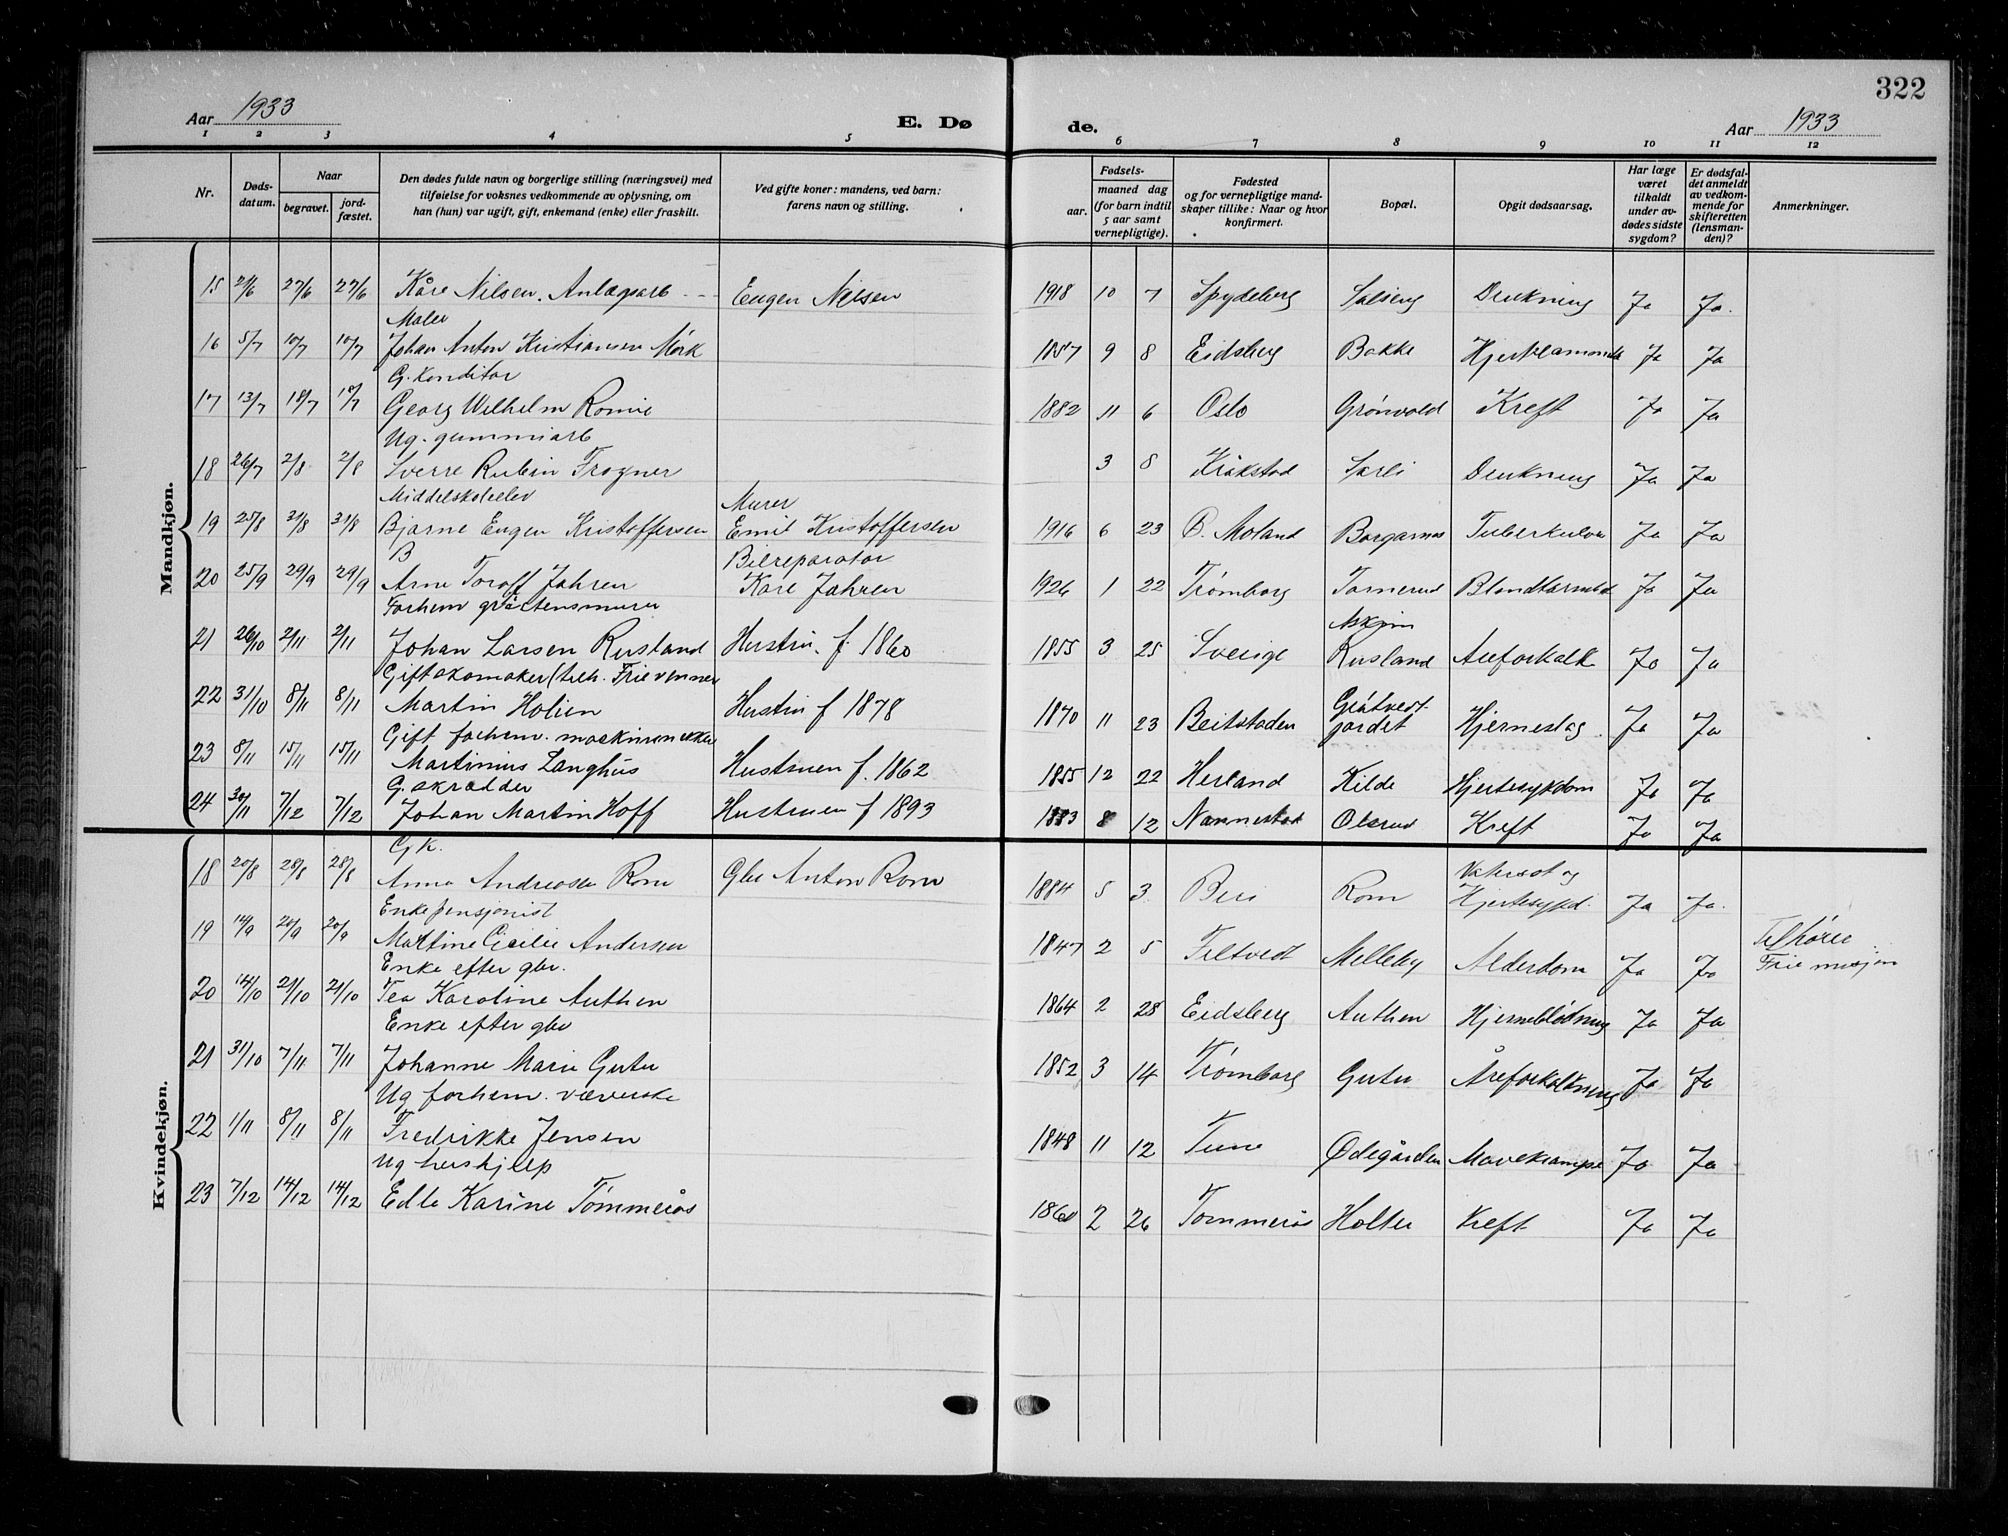 322
Aar 1933
E. Dø
de.
Aar 1933
1 2 3 4 5 6 7 8 9 10 11 12
Nr.
Døds-
datum.
Naar
begravet.
jord-
fæstet.
Den dødes fulde navn og borgerlige stilling (næringsvei) med
tilføielse for voksnes vedkommende av oplysning, om
han (hun) var ugift, gift, enkemand (enke) eller fraskilt.
Ved gifte koner: mandens, ved barn:
farens navn og stilling.
Fødsels-
aar.
maaned dag
(for barn indtil
5 aar samt
vernepligtige).
Fødested
og for vernepligtige mand-
skaper tillike: Naar og hvor
konfirmert.
Bopæl.
Opgit dødsaarsag.
Har læge
været
tilkaldt
under av-
dødes sidste
sygdom?
Er dødsfal-
det anmeldt
av vedkom-
mende for
skifteretten
(lensman-
den)?
Anmerkninger.
Mandkjøn.
15 21/6 27/6 27/6 Kåre Nilsen. Anlægsarb Eugen Nilsen 1918 10 7 Spydeberg Solberg Drukning Ja Ja.
Maler
16 5/7 10/7 10/7 Johan Anton Kristiansen Mørk 1857 9 8 Eidsberg Bakke Ja Ja
G. Konditor
17 13/7 18/7 18/7 Georg Wilhelm 1882 11 6 Oslo Grønvold Kreft Ja Ja
Ug. gummiarb
18 26/7 2/8 2/8 Sverre Rubin Frogner 3 8 Kråkstad Drukning Ja Ja
Middelskoleelev Murer
19 25/8 31/8 31/8 Bjarne Eugen Kristoffersen Emil Kristoffersen 1916 6 23 Ø. Moland Borgarnes Ja Ja
B Bilreparatør
20 25/9 29/9 29/9 Arne Toralf Jahren Kåre Jahren 1926 1 22 Trømborg Tomerud Ja Ja
Forhem gråstensmurer Askim
21 26/10 2/11 2/11 Johan Larsen Rusland Hustru. f. 1860 1855 3 25 Sverige Rusland Aareforkalk Ja Ja
Gift skomaker (tilh. Frie venner
22 31/10 8/11 8/11 Martin Holien Hustru f 1878 1870 11 23 Beitstaden Gråtvedt-
jordet Hjerneslag Ja Ja
Gift forhem. maskinsnekker
23 8/11 15/11 15/11 Martinius Langhus Hustruen f. 1862 1855 12 22 Herland Kilde Hjertesykdom Ja Ja
G. skrædder
24 30/11 7/12 7/12 Johan Martin Hoff Hustruen f 1893 1883 8 12 Nannestad Olsrud Kreft Ja Ja
Kvindekjøn.
Gk. Vatersot og
18 20/8 28/8 28/8 Anna Andreasen Rom Gbr Anton Rom 1884 5 3 Biri Rom Hjertesygd. Ja Ja.
Enkepensjonist
19 14/9 20/9 20/9 Martine Cicilie Andersen 1847 2 5 Filtvedt Melleby Alderdom Ja Ja Tilhører
Frie misjon
Enke efter gbr.
20 14/10 21/10 21/10 Tea Karoline Authen 1864 2 28 Eidsberg Authen Hjerneblødning Ja Ja
Enke efter gbr
21 31/10 7/11 7/11 Johanne Marie Guter 1852 3 14 Trømborg Guter Åreforkalkning Ja Ja
Ug forhem. væverske
22 1/11 8/11 8/11 Fredrikke Jensen 1848 11 12 Tune Ødegården Mavekrampe Ja Ja
Ug hushjelp
23 7/12 14/12 14/12 Edle Karine Tømmerås 2 26 Tømmerås Holter Kreft Ja Ja